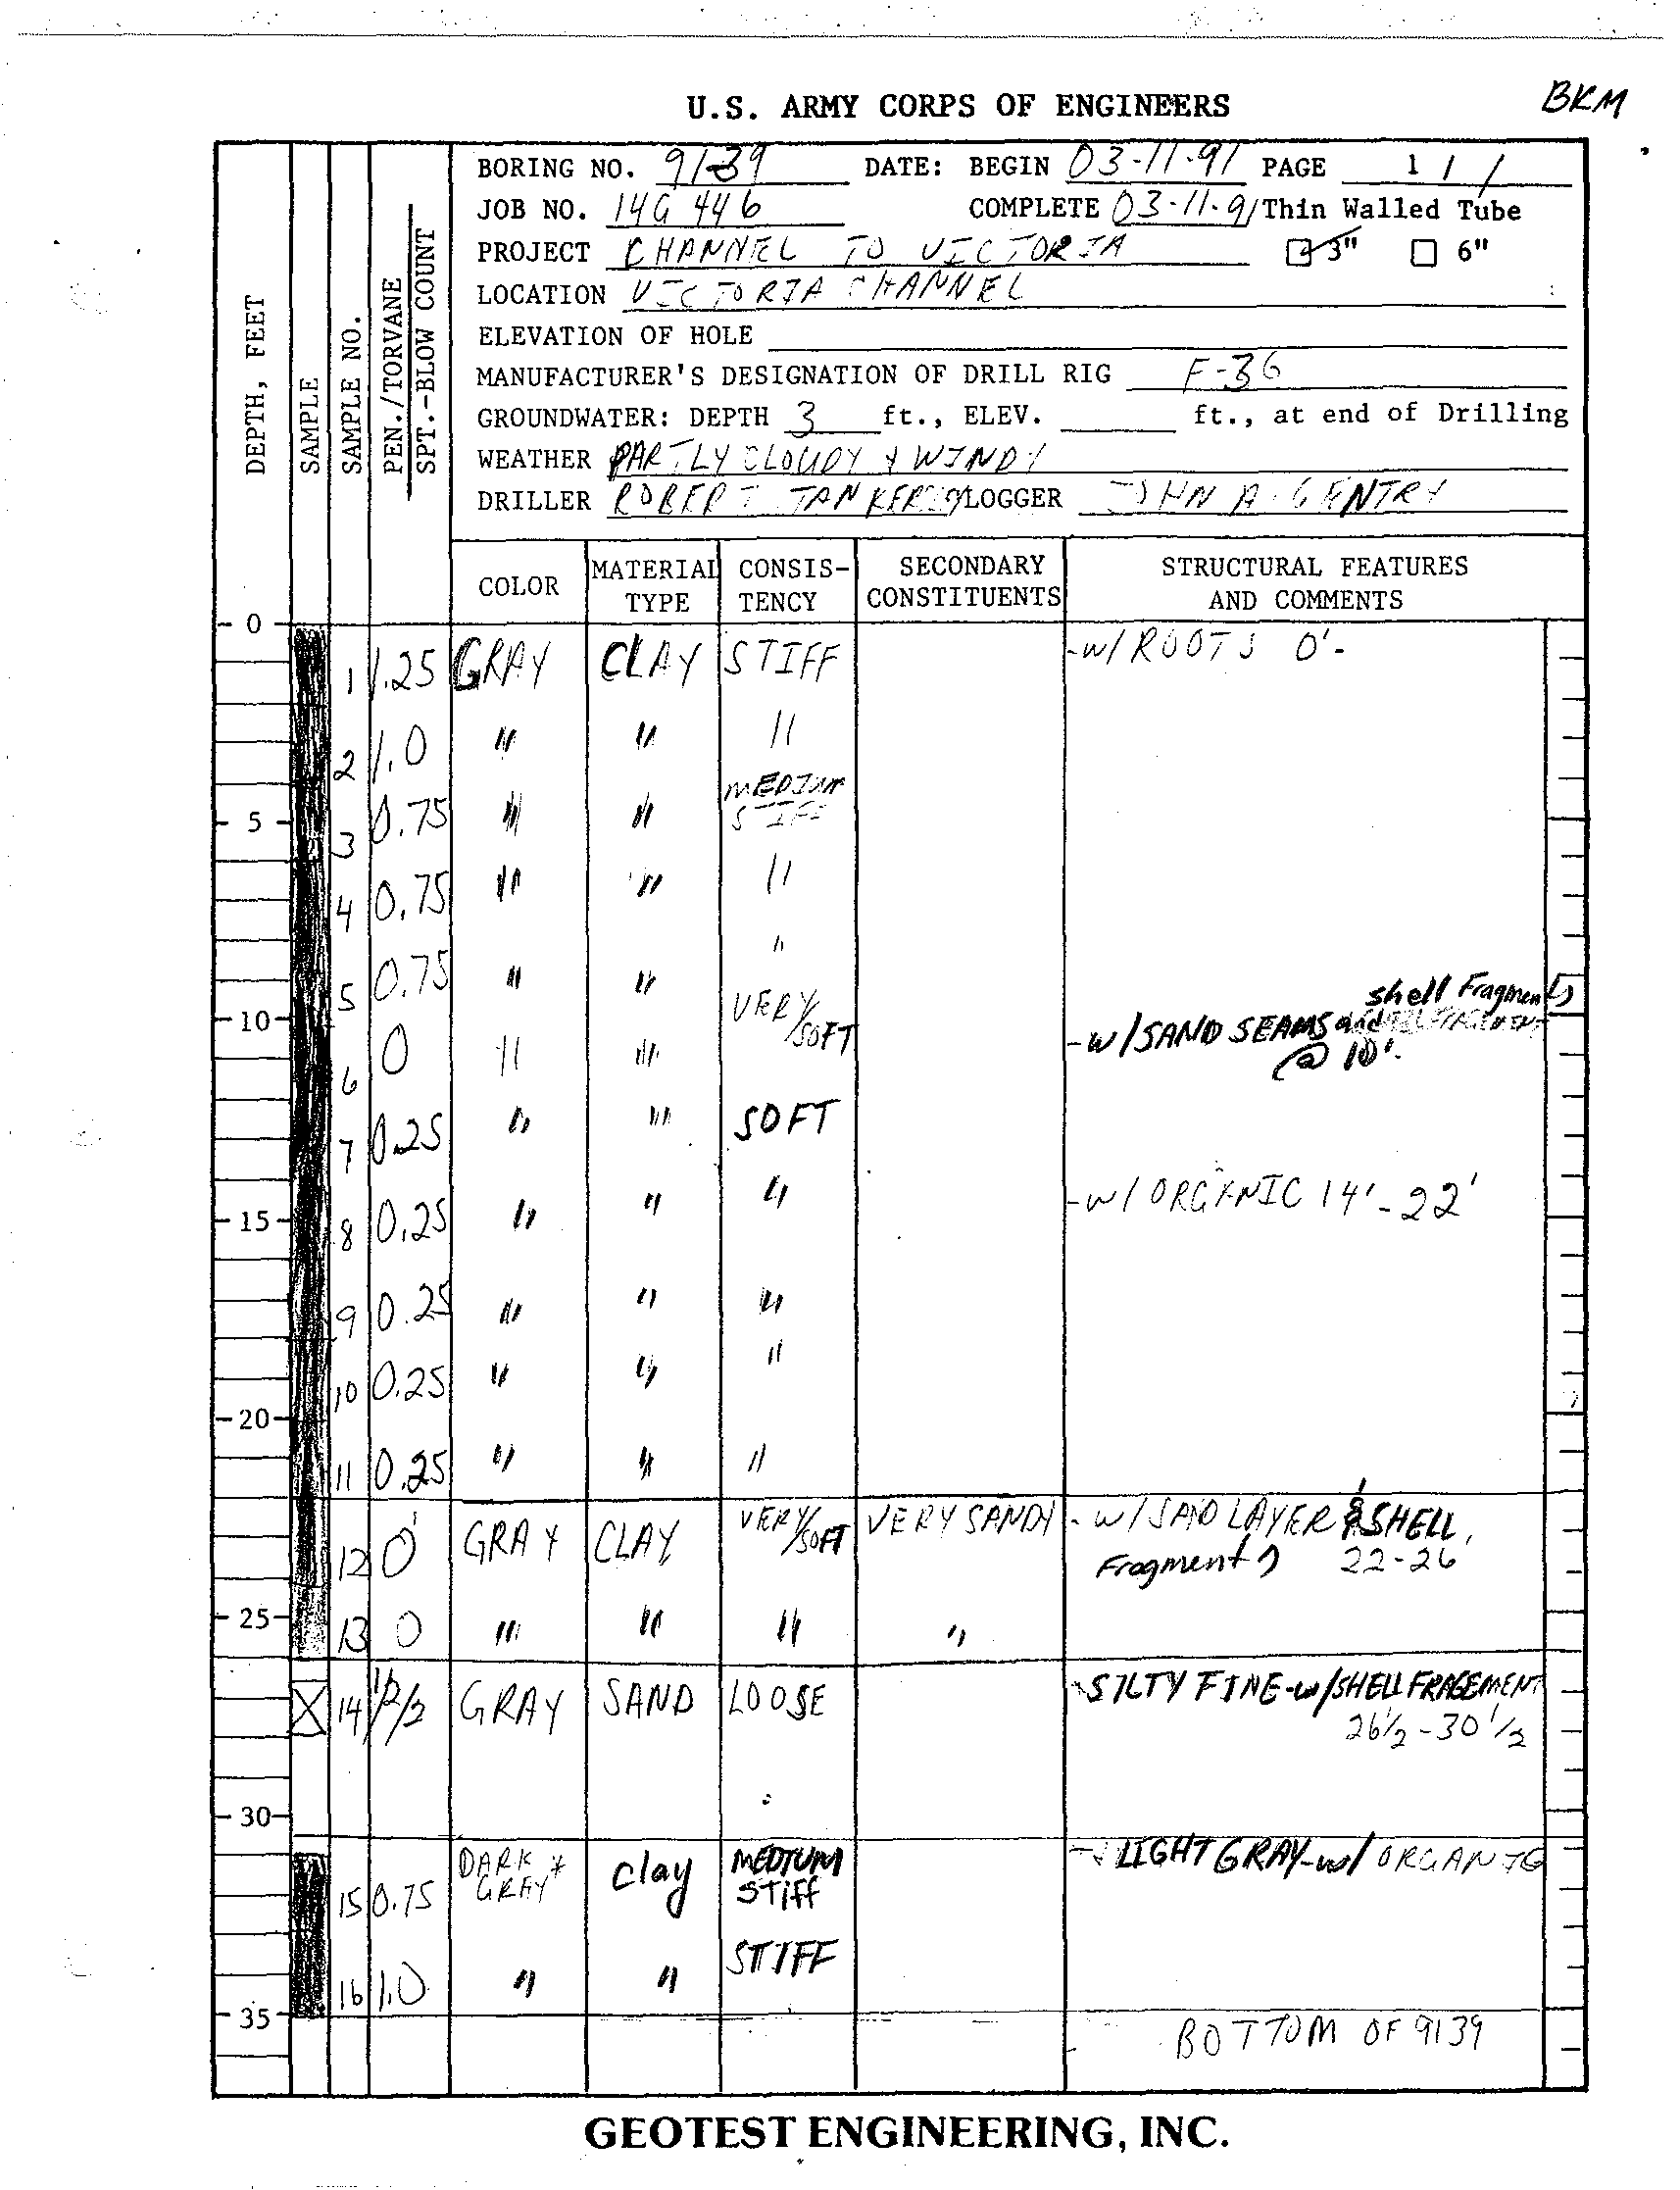 BKM
U.S. ARMY CORPS OF ENGINEERS
DEPTH, FEET
SAMPLE
SAMPLE NO.
PEN./TORVANE
SPT.-BLOW COUNT
BORING NO. 9139 DATE: BEGIN 03-11-91 PAGE 1 / 1
JOB NO. 14G 446 COMPLETE 03-11-91 Thin Walled Tube
PROJECT CHANNEL TO VICTORIA 3" 6"
LOCATION VICTORIA CHANNEL
ELEVATION OF HOLE
MANUFACTURER'S DESIGNATION OF DRILL RIG F-36
GROUNDWATER: DEPTH 3 ft., ELEV. ft., at end of Drilling
WEATHER PARTLY CLOUDY & WINDY
DRILLER ROBERT TANKERSLY LOGGER JOHN A. GENTRY
COLOR MATERIAL TYPE CONSIS-TENCY SECONDARY CONSTITUENTS STRUCTURAL FEATURES AND COMMENTS
0
1 1.25 GRAY CLAY STIFF -W/ROOTS 0'-
2 1.0 " " "
MEDIUM
5 3 0.75 " " STIFF
4 0.75 " " "
"
5 0.75 " " VERY shell Fragment
10 SOFT -W/SAND SEAMS and
6 0 " " @ 10'.
7 0.25 " " SOFT
15 8 0.25 " " " -W/ORGANIC 14'-22'
9 0.25 " " "
10 0.25 " " "
20
11 0.25 " " "
12 0 GRAY CLAY VERY/SOFT VERY SANDY -W/SAND LAYER & SHELL,
Fragment) 22-26
25 13 0 " " " "
14 1/2/2 GRAY SAND LOOSE SILTY FINE-W/SHELL FRAGEMENT
26 1/2 - 30 1/2
30
15 0.75 DARK GRAY* clay MEDIUM STIFF LIGHT GRAY-W/ORGANIC
16 1.0 " " STIFF
35
BOTTOM OF 9139
GEOTEST ENGINEERING, INC.